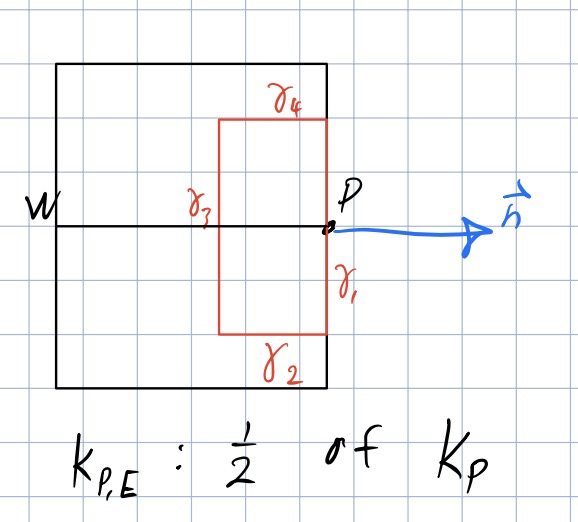 γ₄
W
γ₃
P
n⃗
γ₁
γ₂
k_{P,E} : 1/2 of k_P